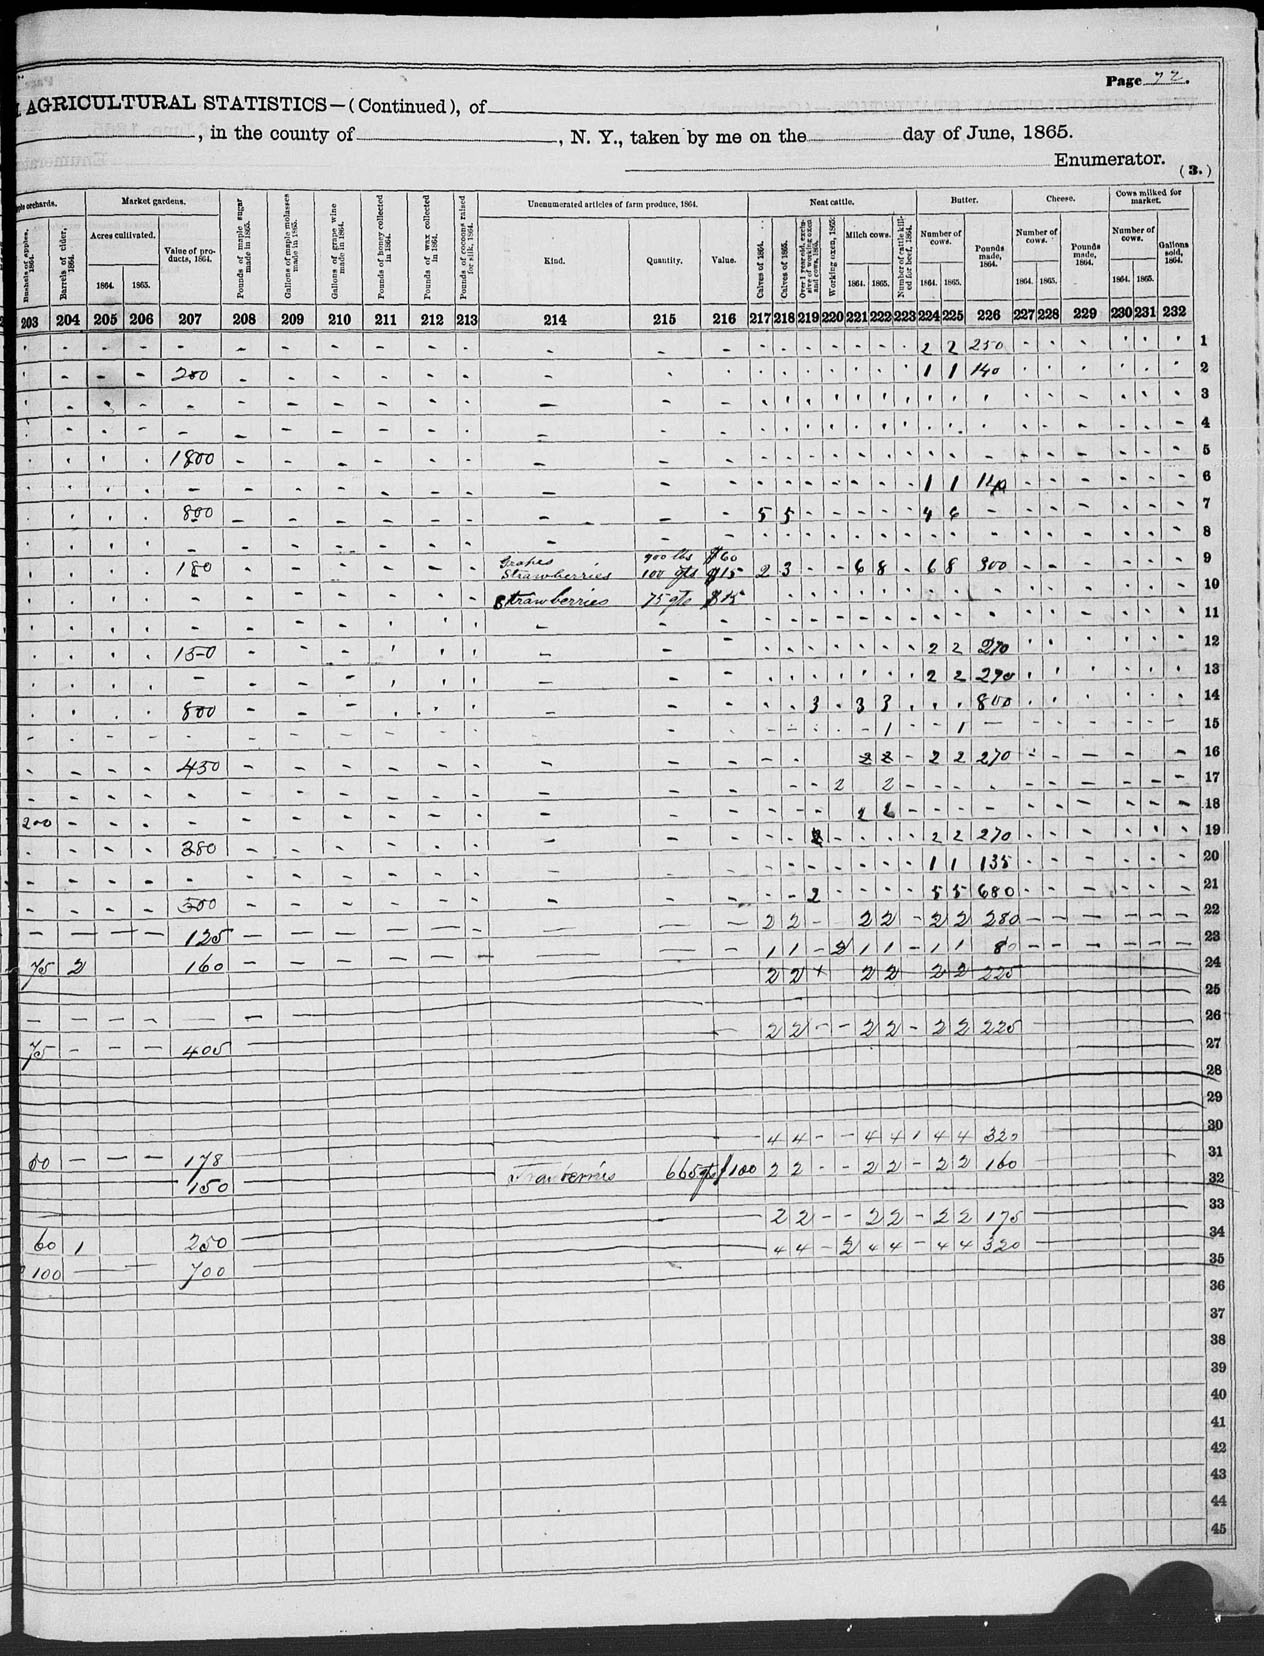 Page 72.
AGRICULTURAL STATISTICS—(Continued), of
, in the county of , N. Y., taken by me on the day of June, 1865.
Enumerator.
(3.)
orchards. Market gardens. Unenumerated articles of farm produce, 1864. Neat cattle. Butter. Cheese. Cows milked for market.
Bushels of apples, 1864. Barrels of cider, 1864. Acres cultivated. 1864. 1865. Value of products, 1864. Pounds of maple sugar made in 1865. Gallons of maple molasses made in 1865. Gallons of grape wine made in 1864. Pounds of honey collected in 1864. Pounds of wax collected in 1864. Pounds of cocoons raised for silk, 1864. Kind. Quantity. Value. Calves of 1864. Calves of 1865. Over 1 year old, exclusive of working oxen and cows, 1865. Working oxen, 1865. Milch cows. 1864. 1865. Number of cattle killed for beef, 1864. Number of cows. 1864. 1865. Pounds made, 1864. Number of cows. 1864. 1865. Pounds made, 1864. Number of cows. 1864. 1865. Gallons sold, 1864.
203 204 205 206 207 208 209 210 211 212 213 214 215 216 217 218 219 220 221 222 223 224 225 226 227 228 229 230 231 232
2 2 250 1
200 1 1 140 2
3
4
1800 5
1 1 140 6
800 5 5 4 6 7
8
Grapes 900 lbs $60
180 Strawberries 100 qts $15 2 3 6 8 6 8 300 9
Strawberries 75 qts $15 10
11
150 2 2 270 12
2 2 290 13
800 3 3 3 800 14
1 1 15
450 2 2 2 2 270 16
2 2 17
200 2 2 18
380 2 2 2 270 19
1 1 135 20
500 2 5 5 680 21
125 2 2 2 2 2 2 280 22
1 1 2 1 1 1 1 80 23
75 2 160 2 2 2 2 2 2 225 24
25
2 2 2 2 2 2 225 26
75 405 27
28
29
4 4 4 4 4 4 320 30
60 178 2 2 2 2 2 2 160 31
150 665 qts $100 32
2 2 2 2 2 2 175 33
60 1 250 4 4 2 4 4 4 4 320 34
100 700 35
36
37
38
39
40
41
42
43
44
45